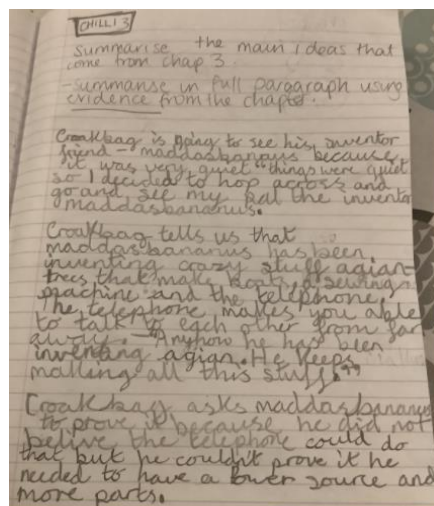 CHILLI 3
Summarise the main ideas that
come from chap 3.
-summarise in full paragraph using
evidence from the chapter.
Croakbag is going to see his inventor
friend - maddasbananus because
it was very quiet "things were quiet
so I decided to hop across and
go and see my pal the inventor
maddasbananus.
Croakbag tells us that
maddasbananus has been
inventing crazy stuff agian-
trees that make boats, a sewing
machine and the telephone,
The telephone makes you able
to talk to each other from far
away. "Anyhow he has been
inventing agian. He keeps
making all this stuff."
Croakbag asks maddasbananus
to prove it because he did not
belive the telephone could do
that but he couldn't prove it he
needed to have a power source and
more parts.